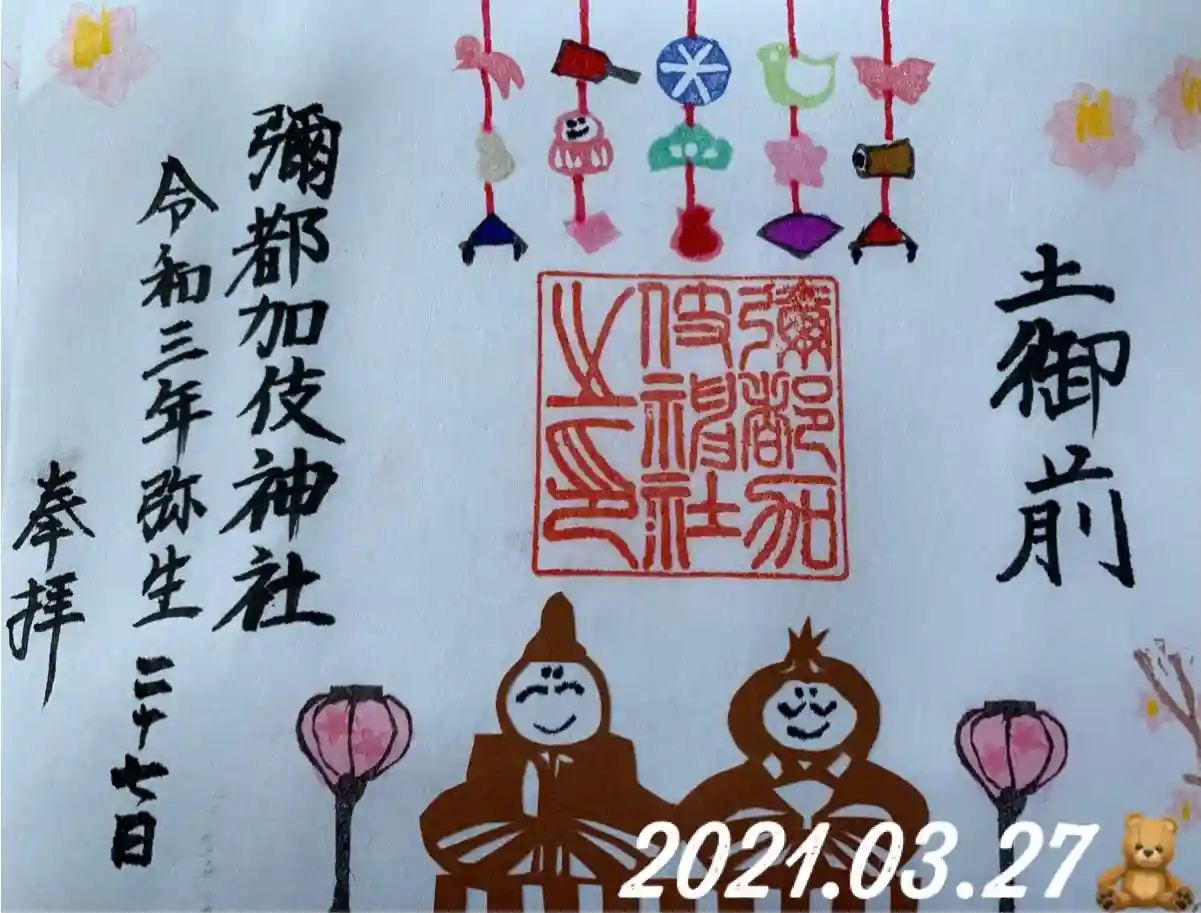 土御前
彌都加
伎神社
之印
彌都加伎神社
令和三年弥生二十七日
奉拝
2021.03.27